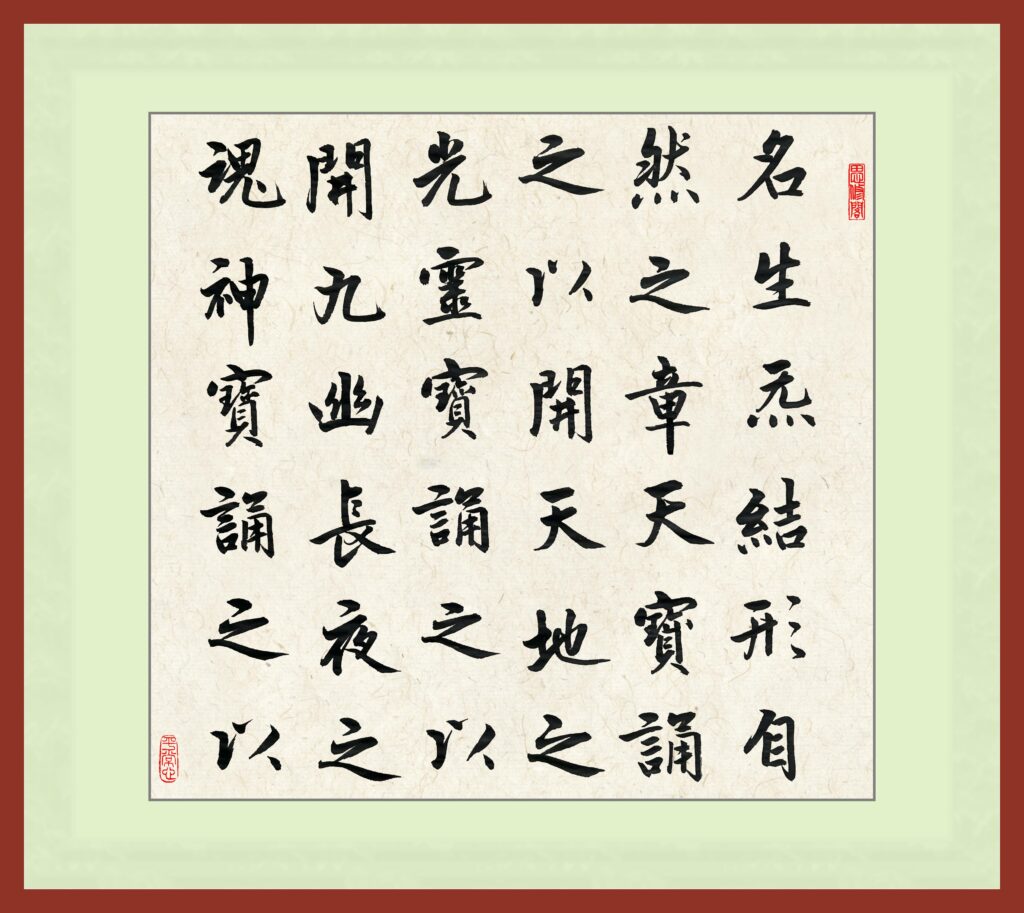 思修閣
名生炁結形自
然之章天寶誦
之以開天地之
光靈寶誦之以
開九幽長夜之
魂神寶誦之以
平常心